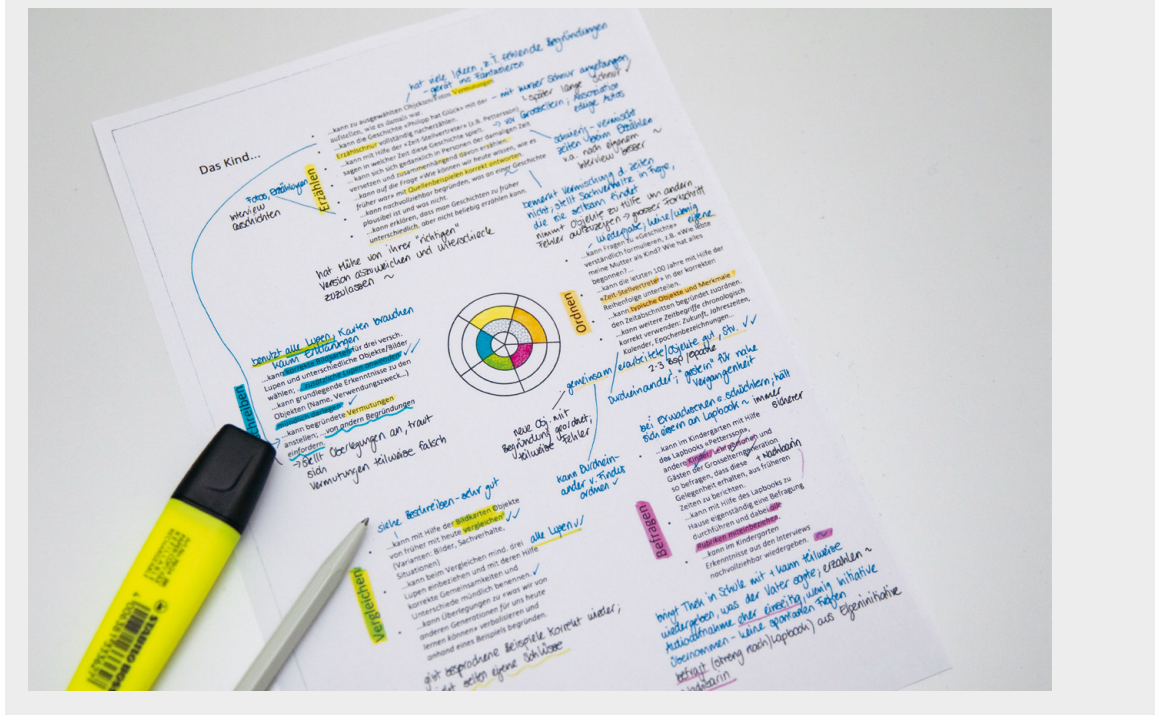 hat viele Ideen, z.T. fehlende Begründungen
- gerät ins Fantasieren
Das Kind...
Erzählen
Fotos, Erzählungen
Interview
Geschichten
...kann zu ausgewählten Objekten/Fotos Vermutungen
aufstellen, wie es damals war.
...kann die Geschichte «Philipp hat Glück» mit der
Erzählschnur vollständig nacherzählen.
...kann mit Hilfe der «Zeit-Stellvertreter» (z.B. Pettersson)
sagen in welcher Zeit diese Geschichte spielt.
...kann sich gedanklich in Personen der damaligen Zeit
versetzen und zusammenhängend davon erzählen.
...kann auf die Frage «Wie können wir heute wissen, wie es
früher war» mit Quellenbeispielen korrekt antworten.
...kann nachvollziehbar begründen, was an einer Geschichte
plausibel ist und was nicht.
...kann erklären, dass man Geschichten zu früher
unterschiedlich, aber nicht beliebig erzählen kann.
- mit kurzer Schnur angefangen
später lange Schnur ✓
→ vor Grosseltern; Assoziation
eckige Autos
schwierig - vermischt
Zeiten beim Erzählen
v.a. nach eigenem ~
Interview besser
bemerkt Vermischung d. Zeiten
nicht, stellt Sachverhalte in Frage,
die sie seltsam findet
nimmt Objekte zu Hilfe um andern
Fehler aufzuzeigen → grosser Fortschritt
hat Mühe von ihrer "richtigen"
Version abzuweichen und Unterschiede
zuzulassen ~
Ordnen
wiedergabe, keine/wenig eigene
...kann Fragen zu «Geschichte»
verständlich formulieren, z.B. «Wie lebte
meine Mutter als Kind? Wie hat alles
begonnen?...
...kann die letzten 100 Jahre mit Hilfe der
«Zeit-Stellvertreter» in der korrekten
Reihenfolge unterteilen.
...kann typische Objekte und Merkmale
den Zeitabschnitten begründet zuordnen.
...kann weitere Zeitbegriffe chronologisch
korrekt verwenden: Zukunft, Jahreszeiten,
Kalender, Epochenbezeichnungen...
gemeinsam erarbeitete Objekte gut, Stv. ✓✓
2-3 Bsp/Epoche
Durcheinander; "gestern" für nahe
Vergangenheit
neue Obj. mit
Begründung geordnet;
teilweise Fehler
kann Durchein-
ander v. Findus
ordnen ✓
benutzt alle Lupen, Karten brauchen
kaum Erklärungen
...kann korrekte Bildkarten für drei versch.
Lupen und unterschiedliche Objekte/Bilder
wählen; zusätzliche Lupen anwenden ✓✓
...kann grundlegende Erkenntnisse zu den
Objekten (Name, Verwendungszweck...)
✓
...kann begründete Vermutungen
anstellen; von andern Begründungen
einfordern.
→ stellt Überlegungen an, traut
sich
Vermutungen teilweise falsch
Vergleichen
siehe Beschreiben - sehr gut
...kann mit Hilfe der Bildkarten Objekte
von früher mit heute vergleichen ✓✓
(Varianten: Bilder, Sachverhalte,
Situationen)
...kann beim Vergleichen mind. drei
Lupen einbeziehen und mit deren Hilfe
korrekte Gemeinsamkeiten und
Unterschiede mündlich benennen. ✓
...kann Überlegungen zu «was wir von
anderen Generationen für uns heute
lernen können» verbalisieren und
anhand eines Beispiels begründen.
alle Lupen ✓✓
gibt besprochene Beispiele korrekt wieder;
selten eigene Schlüsse
Befragen
bei Erwachsenen e. schüchtern; hält
sich eisern an Lapbook ~ immer
sicherer
...kann im Kindergarten mit Hilfe
des Lapbooks «Pettersson»,
andere Kinder/Lehrpersonen und
Gästen der Grosselterngeneration
so befragen, dass diese + Nachbarin
Gelegenheit erhalten, aus früheren
Zeiten zu berichten.
...kann mit Hilfe des Lapbooks zu
Hause eigenständig eine Befragung
durchführen und dabei alle
Rubriken miteinbeziehen.
...kann im Kindergarten
Erkenntnisse aus den Interviews
nachvollziehbar wiedergeben.
bringt Thek in Schule mit + kann teilweise
wiedergeben, was der Vater sagte; erzählen ~
Audioaufnahme eher einseitig, wenig Initiative
übernommen - keine spontanen Fragen
befragt (streng nach Lapbook) aus Eigeninitiative
Nachbarin
STABILO BOSS